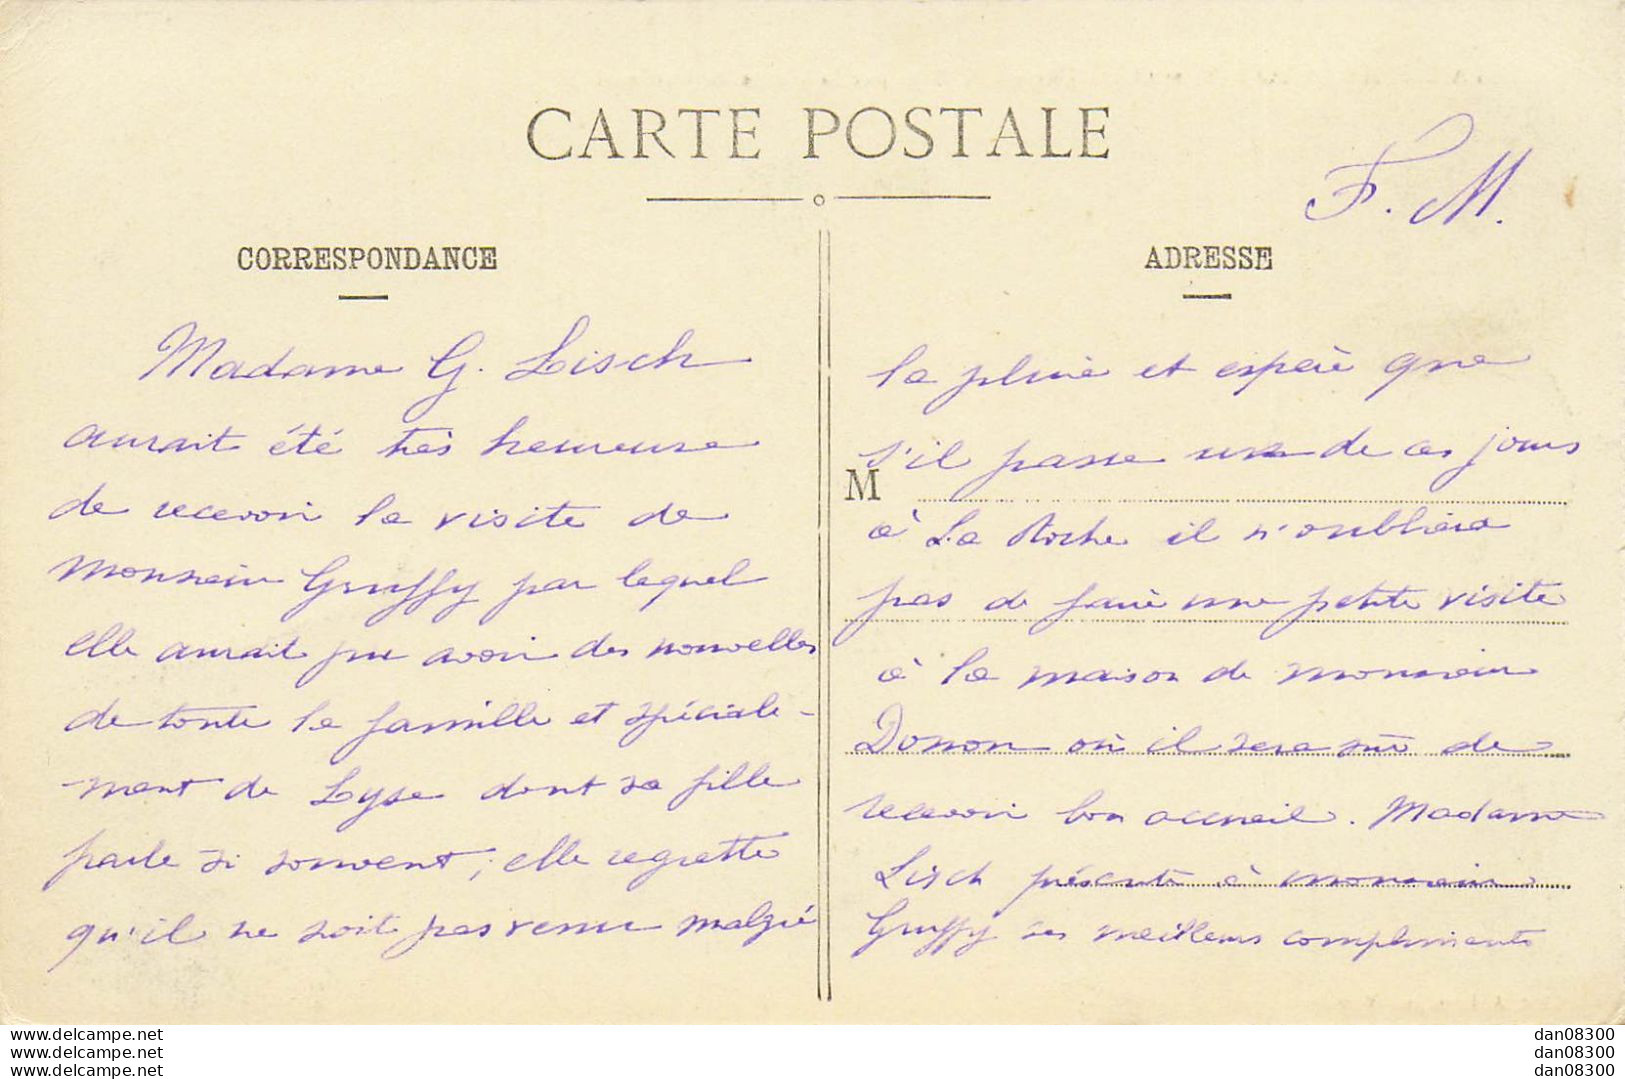 CARTE POSTALE
F. M.
CORRESPONDANCE
Madame G. Lisch
aurait été très heureuse
de recevoir la visite de
monsieur Gruffy par lequel
elle aurait pu avoir des nouvelles
de toute la famille et spéciale-
ment de Lyse dont sa fille
parle si souvent; elle regrette
qu'il ne soit pas venu malgré
ADRESSE
la pluie et espère que
s'il passe un de ces jours
M
à La Roche il n'oubliera
pas de faire une petite visite
à la maison de monsieur
Donon où il sera sûr de
recevoir bon accueil. Madame
Lisch présente à monsieur
Gruffy ses meilleurs compliments
www.delcampe.net
www.delcampe.net
www.delcampe.net
dan08300
dan08300
dan08300